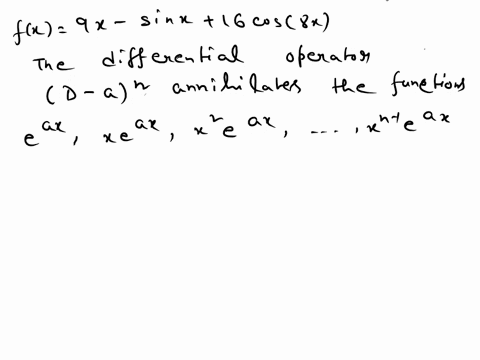 f(x) = 9x - sinx + 16 cos(8x)
The differential operator
(D - a)ⁿ annihilates the functions
e^{ax}, xe^{ax}, x²e^{ax}, ...., x^{n-1}e^{ax}